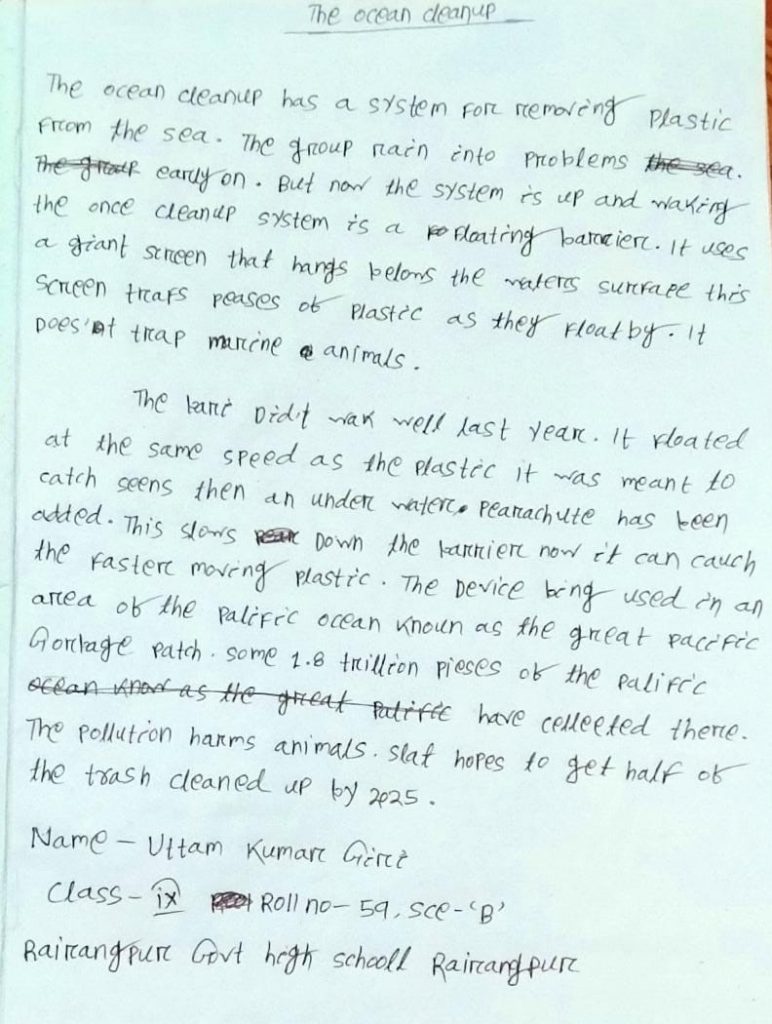 The ocean cleanup
The ocean cleanup has a system for removing plastic
From the sea. The group rain into problems the sea.
The group early on. But now the system is up and waking
the once cleanup system is a floating barrier. It uses
a giant screen that hangs belows the waters surface this
screen traps peases of plastic as they float by. It
Does'nt trap marine animals.
The bari Did't wak well last year. It floated
at the same speed as the plastic it was meant to
catch seens then an under water pearachute has been
added. This slows Down the barrier now it can cauch
the faster moving plastic. The Device bing used in an
area of the palific ocean knoun as the great pacific
Gorbage patch. some 1.8 trillion pieses of the palific
ocean know as the great palific have celleeted there.
The pollution harms animals. slat hopes to get half of
the trash cleaned up by 2025.
Name - Uttam Kumar Giri
Class - ix Roll no - 59, sce - 'B'
Rairangpur Govt high schooll Rairangpur